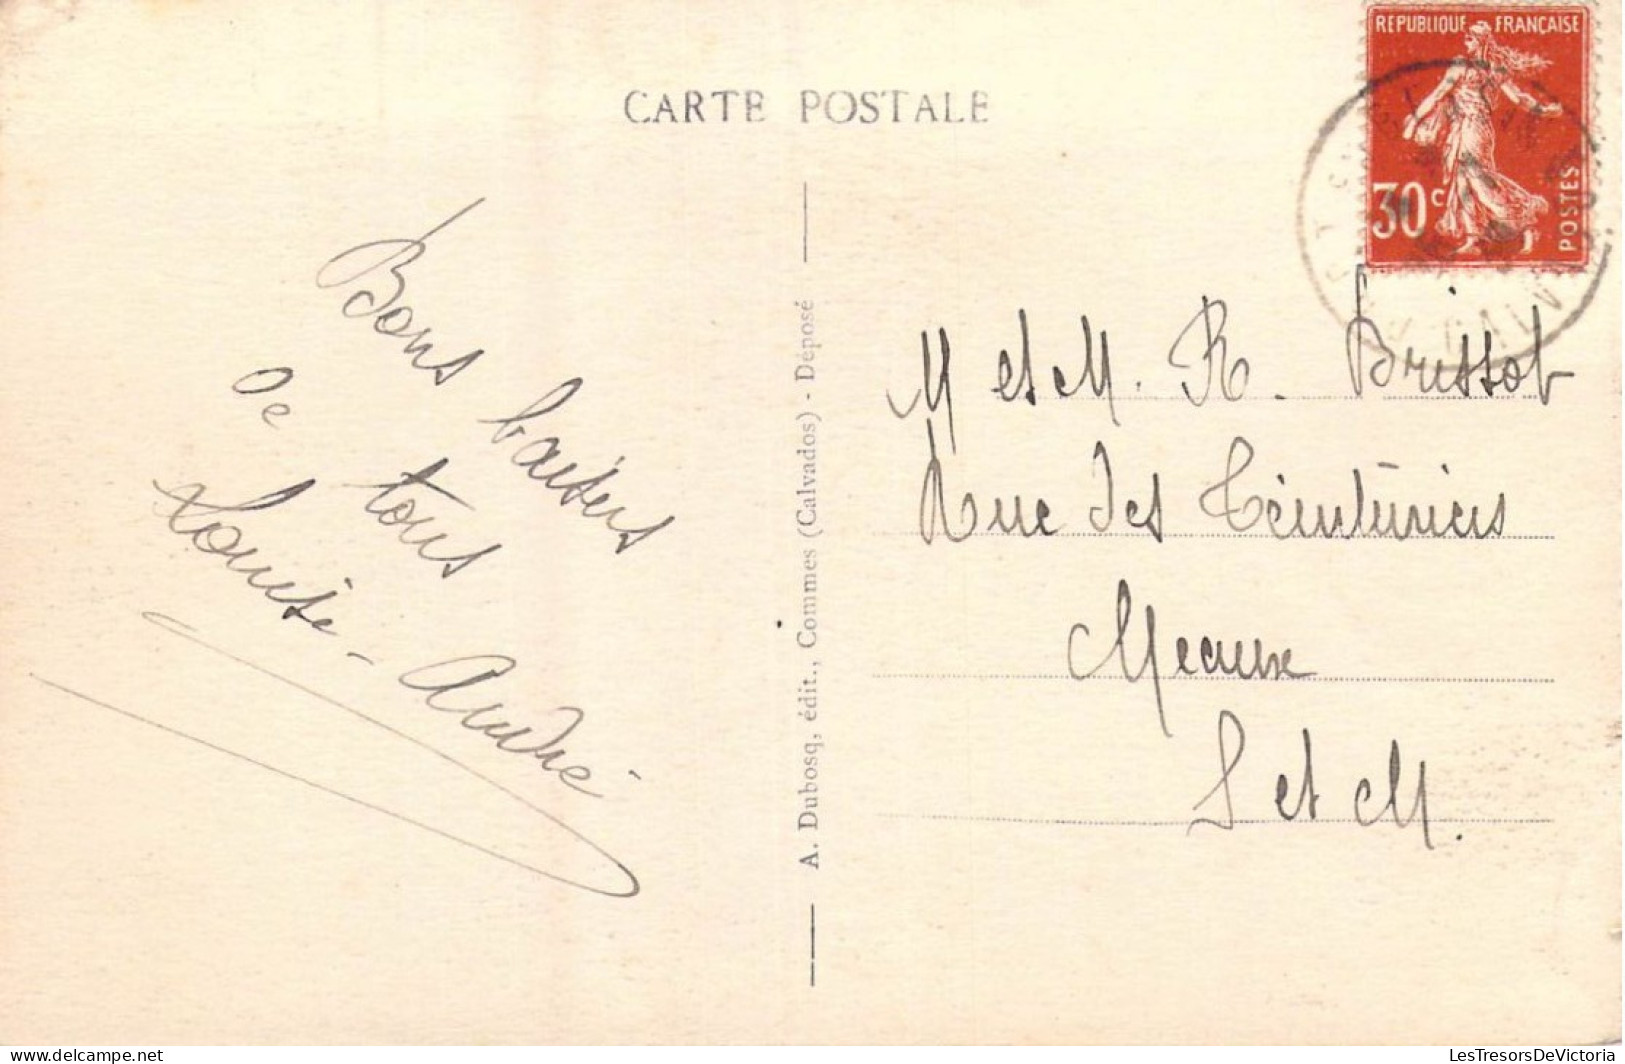 CARTE POSTALE
REPUBLIQUE FRANÇAISE
30c
POSTES
CALV
Bons baisers
de tous
Louise - André
A. Dubosq, édit., Commes (Calvados) - Déposé
M et M. R. Brissot
Rue des Teinturiers
Meaux
S et M.
delcampe.net
LesTresorsDeVictoria